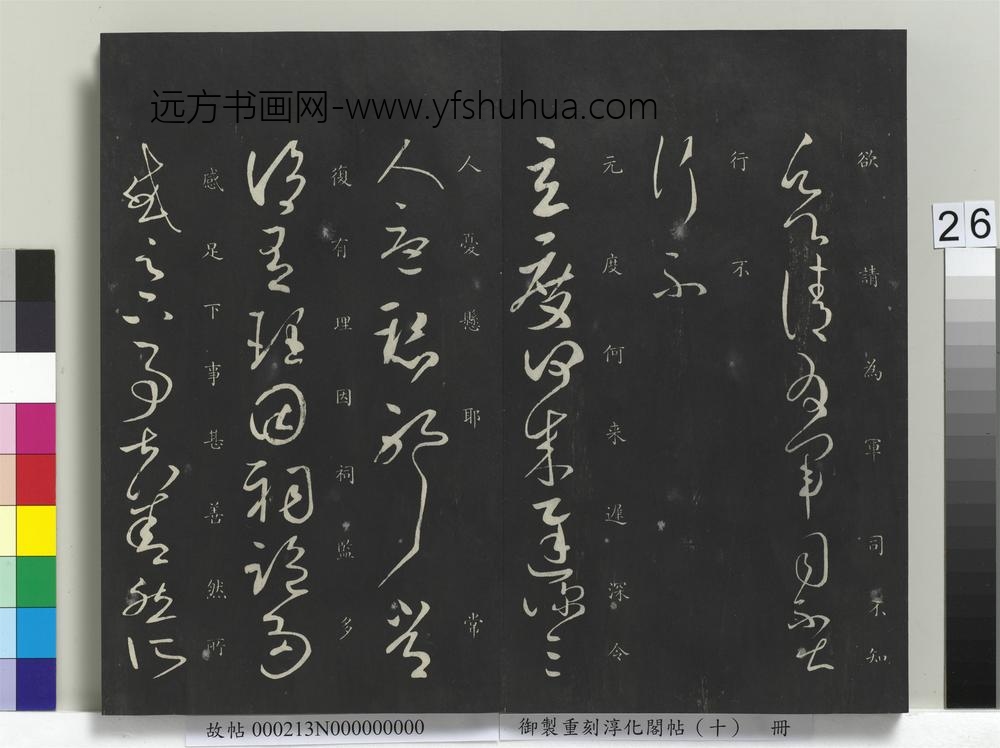 远方书画网-www.yfshuhua.com
欲請為軍司不知
行不
元度何来遅深令
人憂懸耶常
復有理因祠監多
感足下事甚善然所
26
故帖 000213N000000000
御製重刻淳化閣帖（十） 冊